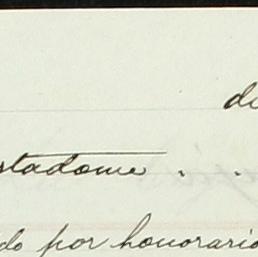 de
stadome . .
do por honorario